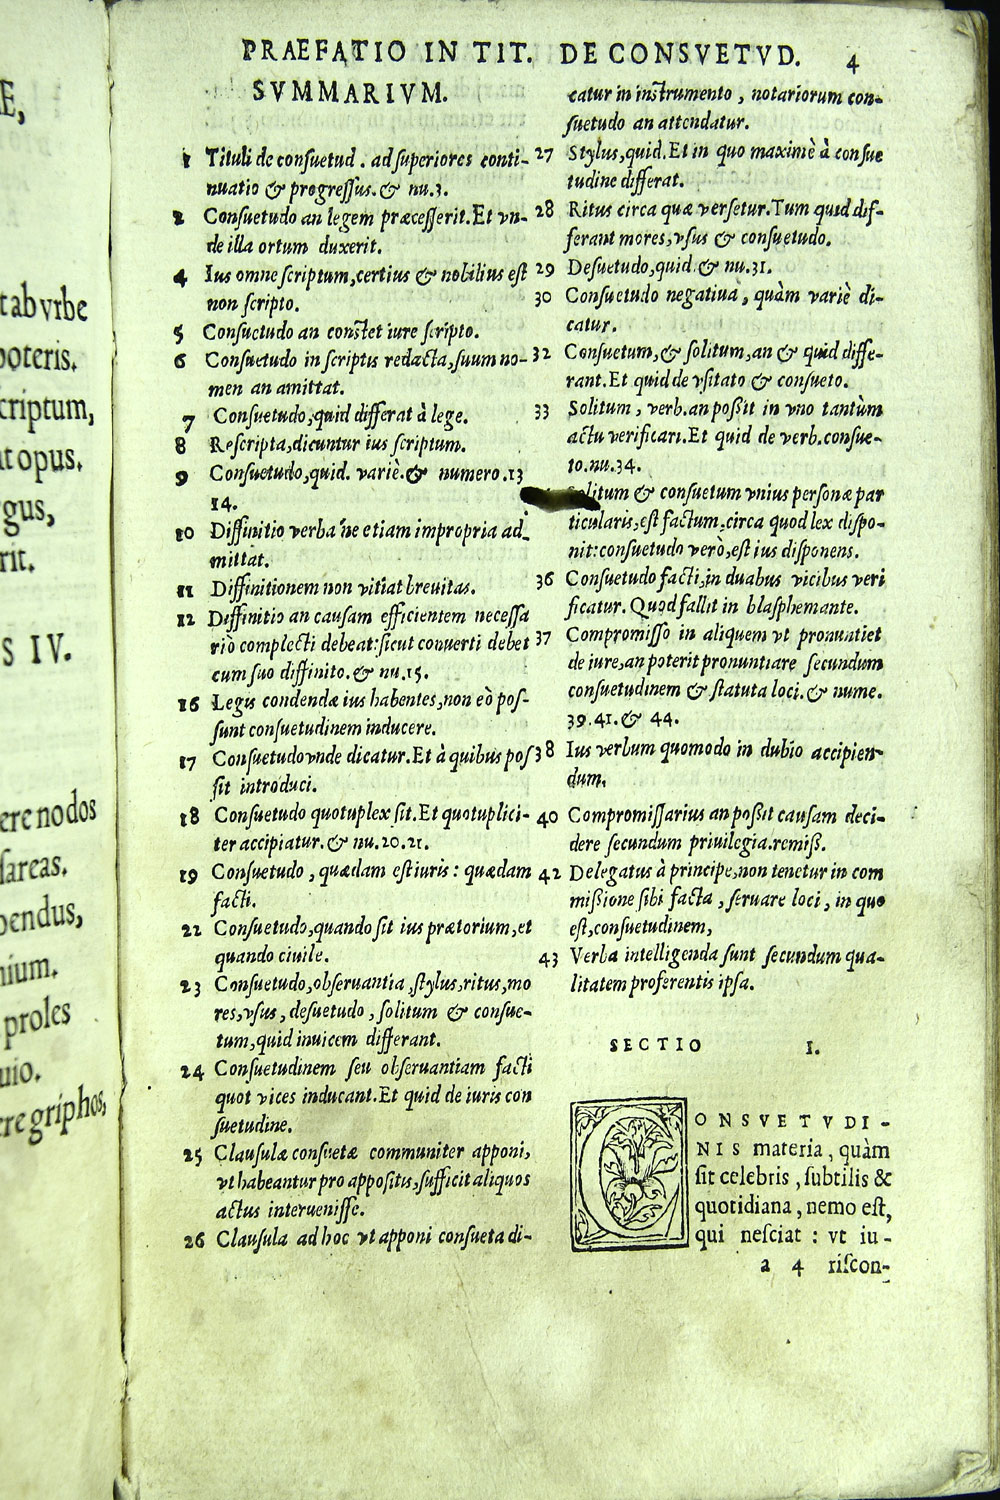 Æ,
t ab vrbe
poteris.
criptum,
at opus.
gus,
rit.
S IV.
ere nodos
sareas.
bendus,
nium.
proles
uio.
ere griphos,
PRAEFATIO IN TIT. DE CONSVETVD. 4
SVMMARIVM.
1 Tituli de consuetud. ad superiores conti-
nuatio & progressus. & nu.3.
2 Consuetudo an legem præcesserit. Et vn-
de illa ortum duxerit.
4 Ius omne scriptum, certius & nobilius est
non scripto.
5 Consuetudo an constet iure scripto.
6 Consuetudo in scriptis redacta, suum no-
men an amittat.
7 Consuetudo, quid differat à lege.
8 Rescripta, dicuntur ius scriptum.
9 Consuetudo, quid. variè. & numero. 13
14.
10 Diffinitio verba ne etiam impropria ad-
mittat.
11 Diffinitionem non vitiat breuitas.
12 Diffinitio an causam efficientem necessa
riò complecti debeat: sicut conuerti debet
cum suo diffinito. & nu.15.
16 Legis condendæ ius habentes, non eò pos-
sunt consuetudinem inducere.
17 Consuetudo vnde dicatur. Et à quibus pos
sit introduci.
18 Consuetudo quotuplex sit. Et quotuplici-
ter accipiatur. & nu.20.21.
19 Consuetudo, quædam est iuris: quædam
facti.
22 Consuetudo, quando sit ius prætorium, et
quando ciuile.
23 Consuetudo, obseruantia, stylus, ritus, mo
res, vsus, desuetudo, solitum & consue-
tum, quid inuicem differant.
24 Consuetudinem seu obseruantiam facti
quot vices inducant. Et quid de iuris con
suetudine.
25 Clausulæ consuetæ communiter apponi,
vt habeantur pro appositis, sufficit aliquos
actus interuenisse.
26 Clausula ad hoc vt apponi consueta di-
catur in instrumento, notariorum con-
suetudo an attendatur.
27 Stylus, quid. Et in quo maximè à consue
tudine differat.
28 Ritus circa quæ versetur. Tum quid dif-
ferant mores, vsus & consuetudo.
29 Desuetudo, quid. & nu.31.
30 Consuetudo negatiua, quàm variè di-
catur.
32 Consuetum, & solitum, an & quid diffe-
rant. Et quid de vsitato & consueto.
33 Solitum, verb. an possit in vno tantùm
actu verificari. Et quid de verb. consue-
to. nu.34.
Solitum & consuetum vnius personæ par
ticularis, est factum, circa quod lex dispo-
nit: consuetudo verò, est ius disponens.
36 Consuetudo facti, in duabus vicibus veri
ficatur. Quod fallit in blasphemante.
37 Compromisso in aliquem vt pronuntiet
de iure, an poterit pronuntiare secundum
consuetudinem & statuta loci. & nume.
39.41. & 44.
38 Ius verbum quomodo in dubio accipien-
dum.
40 Compromissarius an possit causam deci-
dere secundum priuilegia. remiss.
42 Delegatus à principe, non tenetur in com
missione sibi facta, seruare loci, in quo
est, consuetudinem,
43 Verba intelligenda sunt secundum qua-
litatem proferentis ipsa.
SECTIO I.
CONSVETVDI-
NIS materia, quàm
sit celebris, subtilis &
quotidiana, nemo est,
qui nesciat: vt iu-
a 4 riscon-